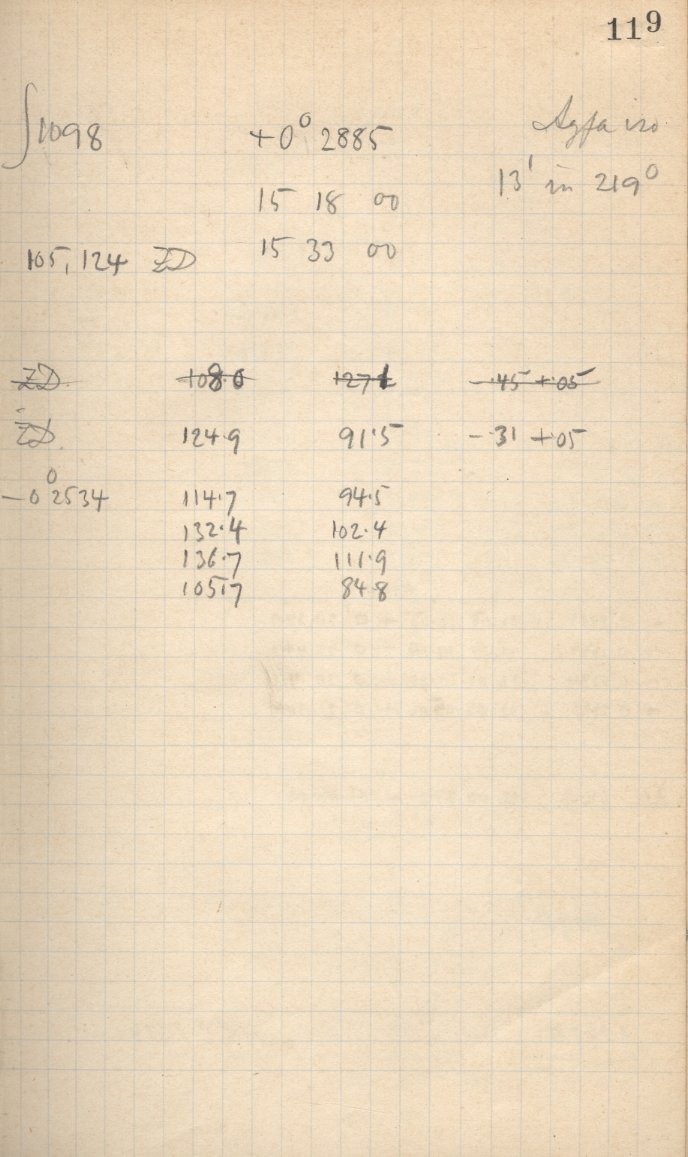 119
∫1098 +0° 2885 Agfa iso
13' in 219°
15 18 00
105, 124 ZD 15 33 00
ZD 108.6 127.1 -.45 +.05
ZD 124.9 91.5 -.31 +.05
-0°2534 114.7 94.5
132.4 102.4
136.7 111.9
105.7 84.8